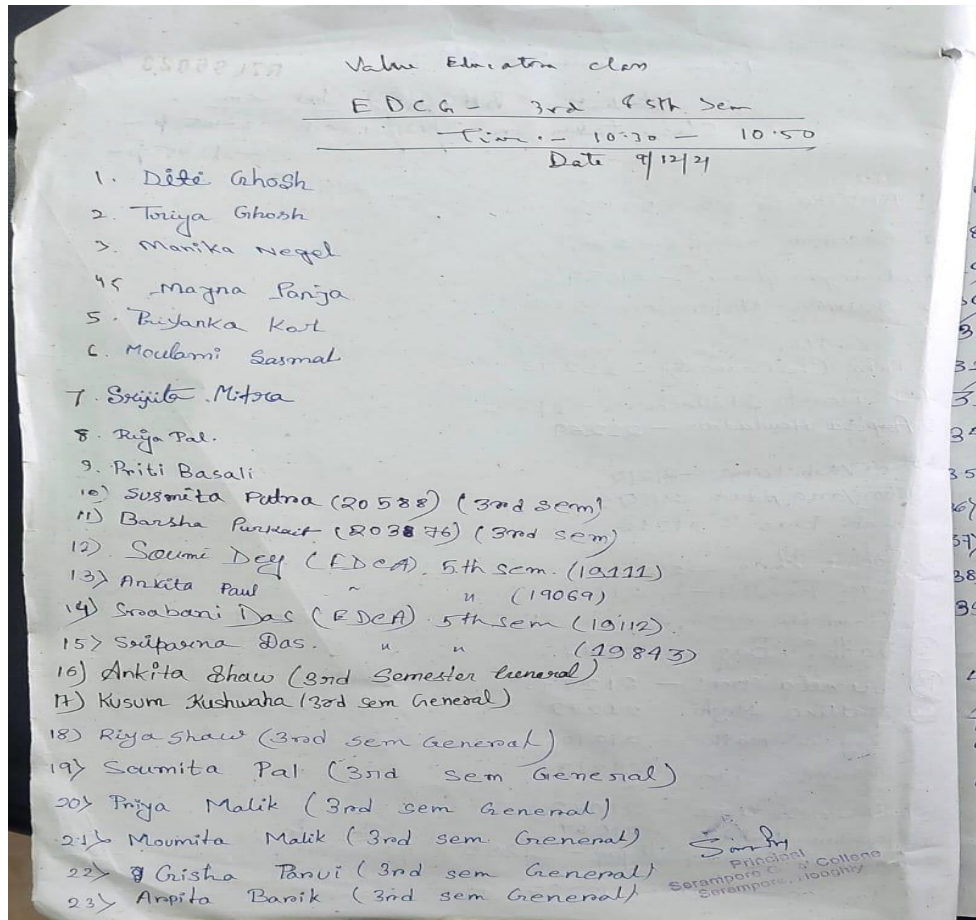 Value Education class
EDCG - 3rd & 5th Sem
Time :- 10:30 - 10:50
Date 9/12/21
1. Diti Ghosh
2. Toriya Ghosh
3. Manika Negel
4. Magna Panja
5. Priyanka Kort
6. Moulami Sasmal
7. Srijita Mitra
8. Riya Pal.
9. Priti Basali
10) Susmita Patra (20588) (3rd sem)
11) Barsha Purkait (203876) (3rd sem)
12). Soumi Dey (EDCA). 5th sem. (19111)
13) Ankita Paul " " (19069)
14) Srabani Das (EDCA) 5th sem (19112).
15) Sriparna Das. " " (19843)
16) Ankita Shaw (3rd Semester General)
17) Kusum Kushwaha (3rd sem General)
18) Riya Shaw (3rd sem General)
19) Soumita Pal (3rd sem General)
20) Priya Malik (3rd sem General)
21) Moumita Malik (3rd sem. General)
22) Grisha Parui (3rd sem General)
23) Arpita Barik (3rd sem General)
Principal
Serampore College
Serampore, Hooghly